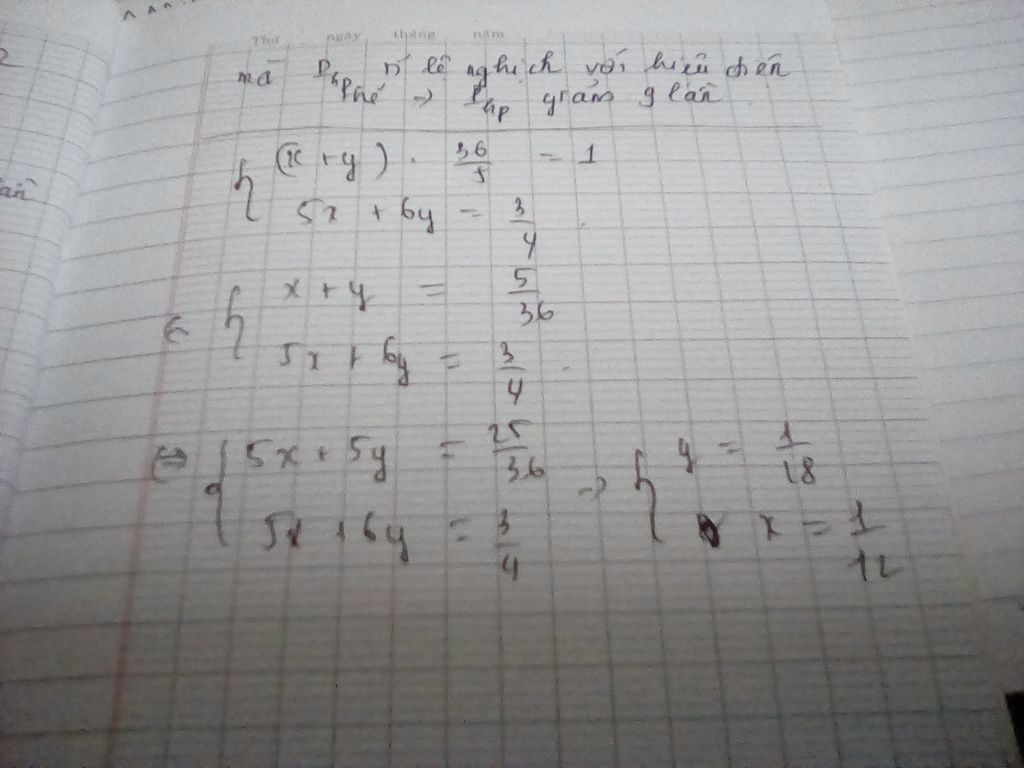 Thứ ngày tháng năm
mà P hp tỉ lệ nghịch với hiệu điện
thế → P hp giảm 9 lần
(x + y) . 36/5 = 1
5x + 6y = 3/4
x + y = 5/36
5x + 6y = 3/4
⇔ 5x + 5y = 25/36 → y = 1/18
5x + 6y = 3/4 x = 1/12